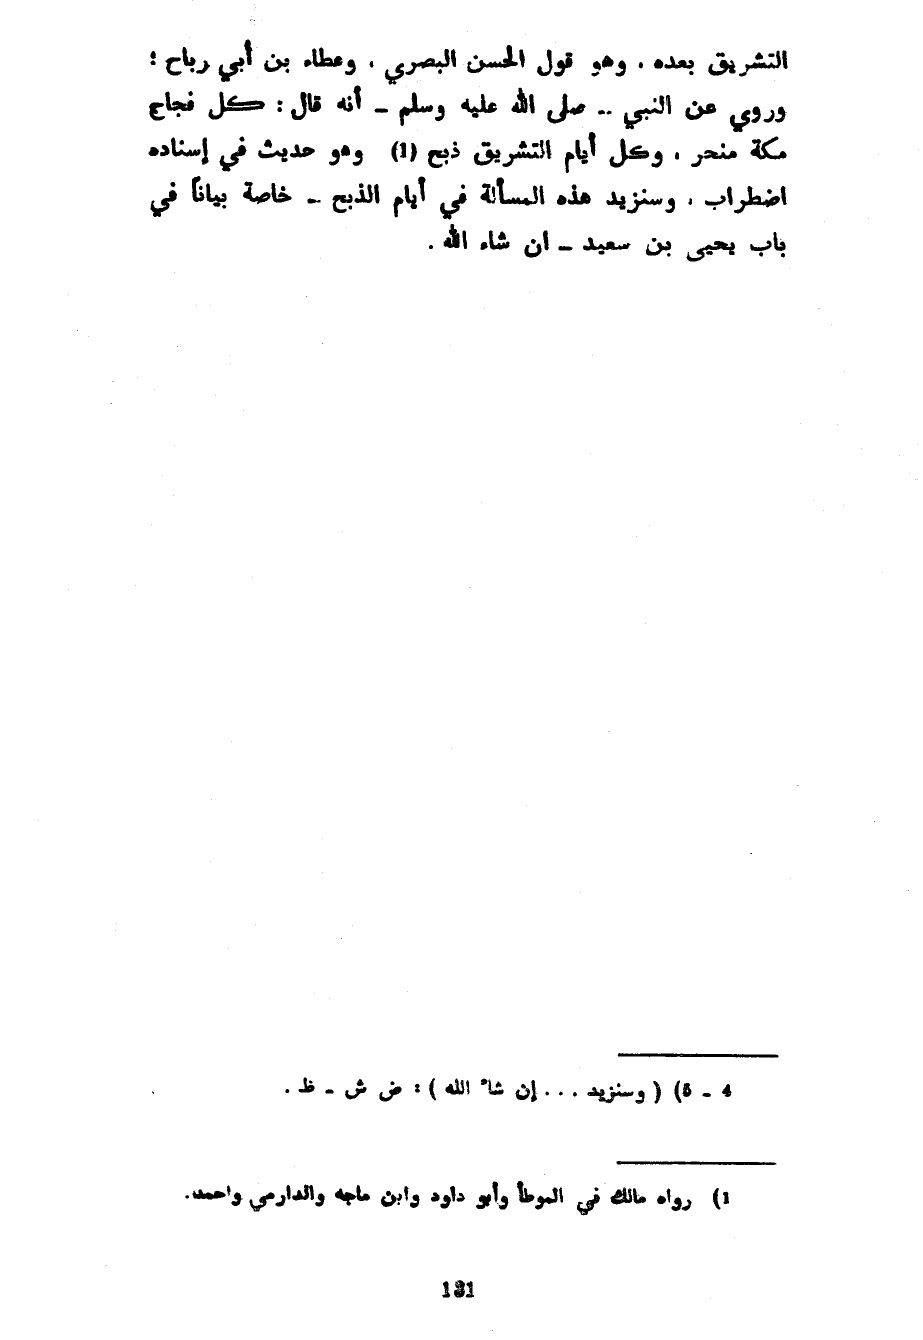 التشريق بعده ، وهو قول الحسن البصري ، وعطاء بن أبي رباح ؛
وروي عن النبي -- صلى الله عليه وسلم - أنه قال : كل فجاج
مكة منحر ، وكل أيام التشريق ذبح (1) وهو حديث في إسناده
اضطراب ، وسنزيد هذه المسألة في أيام الذبح -- خاصة بياناً في
باب يحيى بن سعيد - ان شاء الله .
4 - 5) ( وسنزيد ... إن شاء الله ) : ض ش - ظ .
1) رواه مالك في الموطأ وأبو داود وابن ماجه والدارمي واحمد.
131